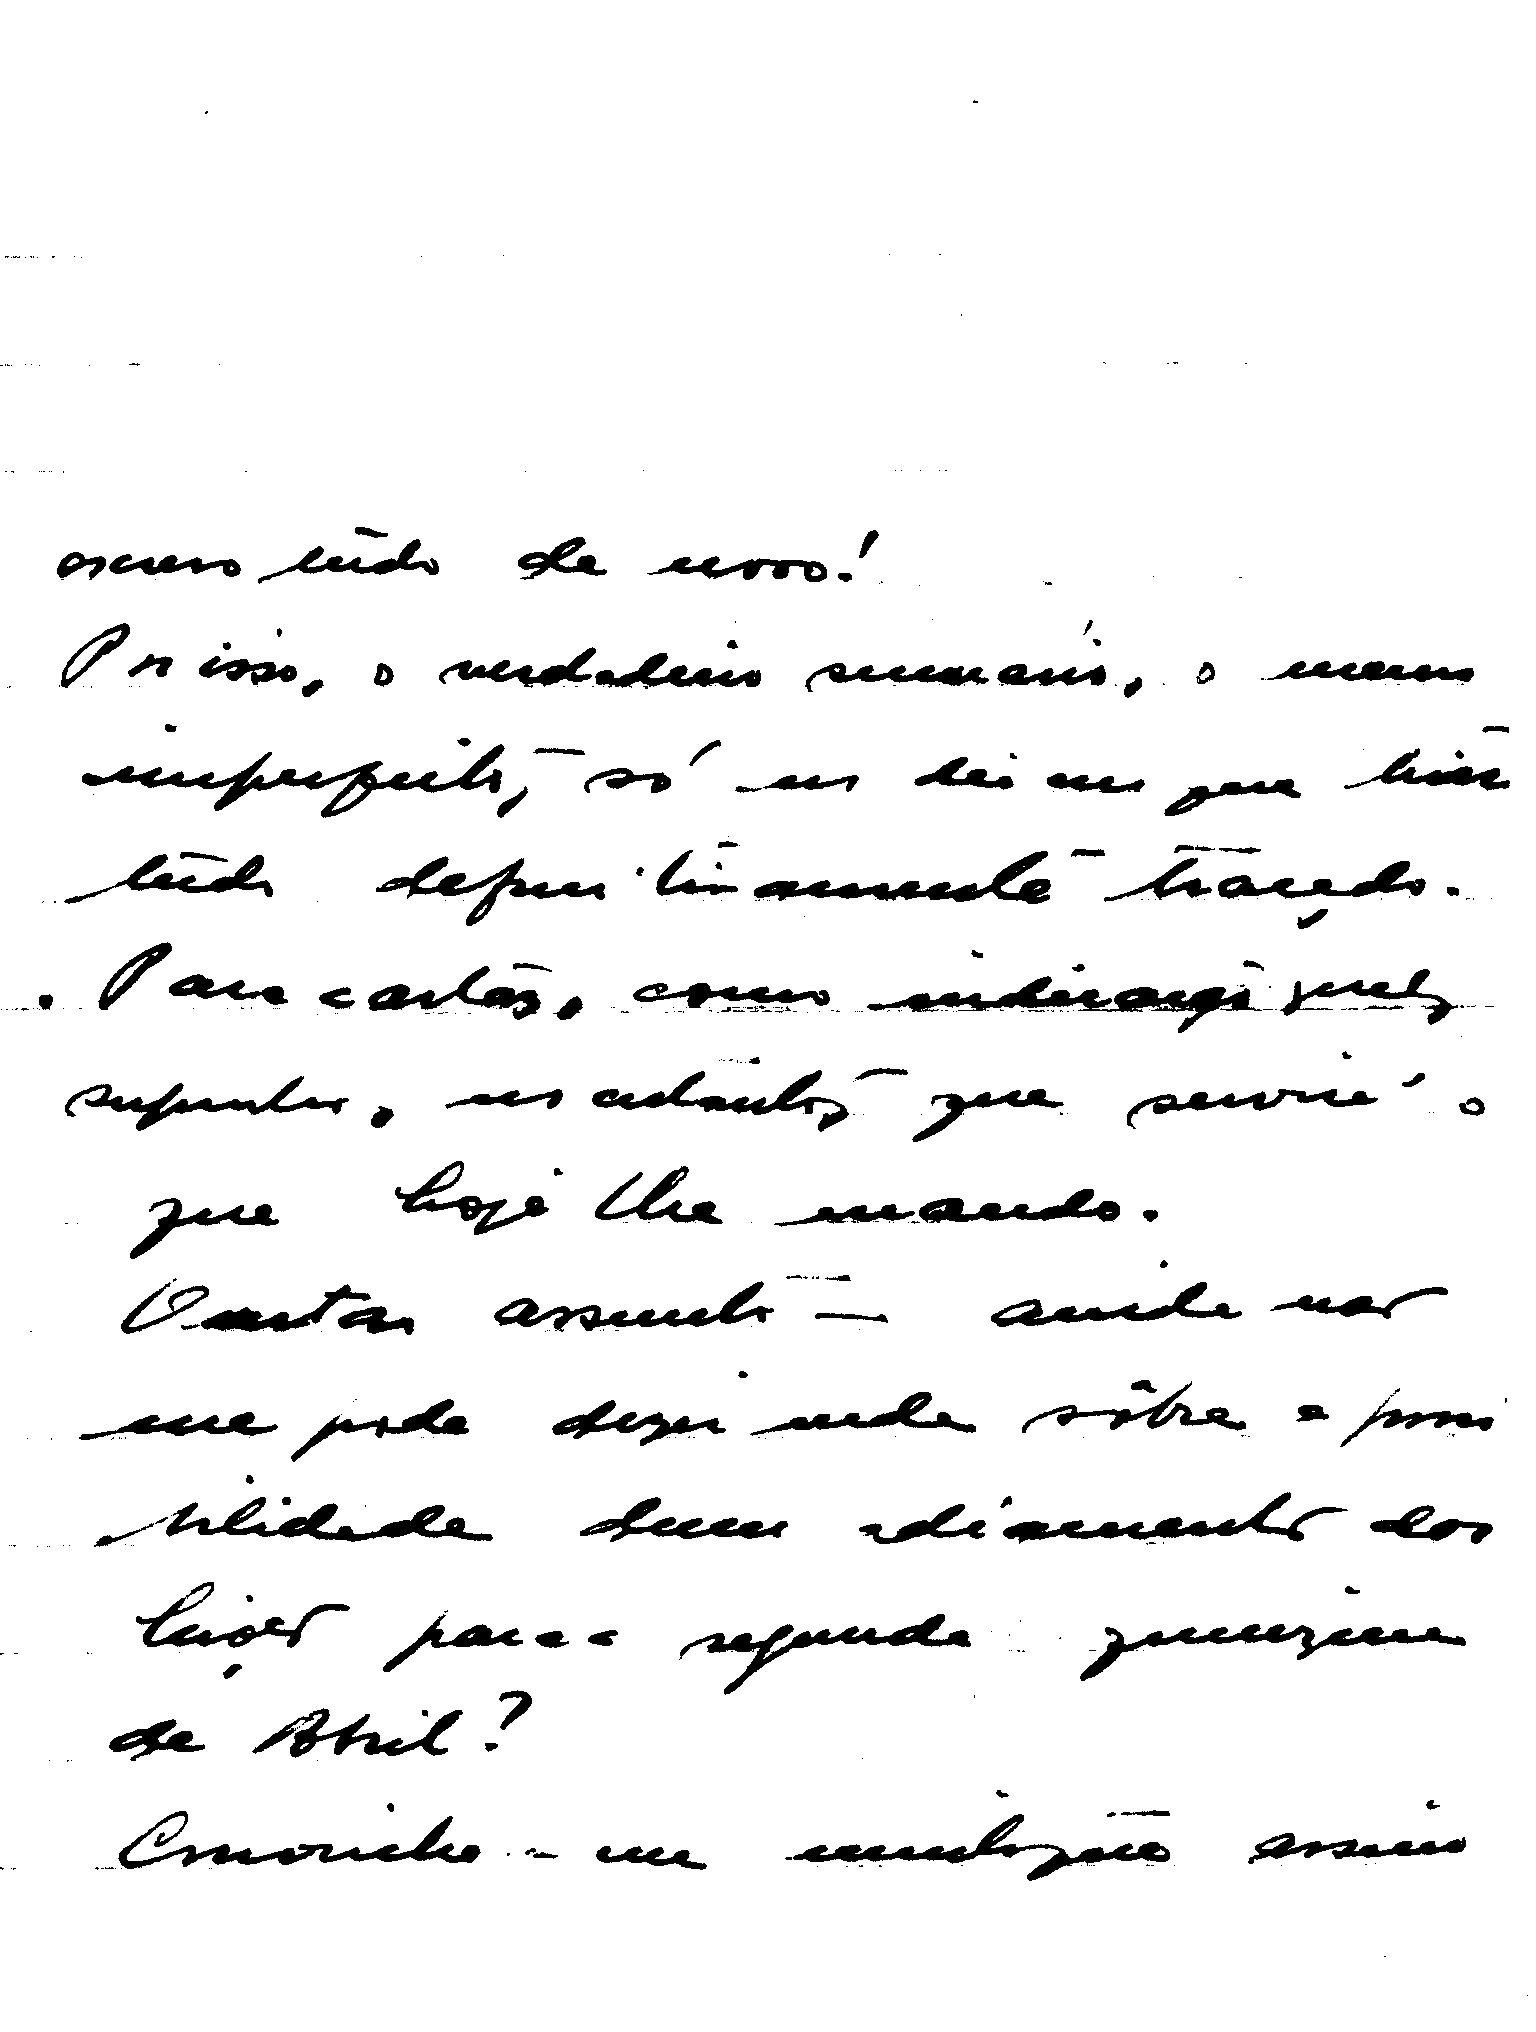 escrevo tudo de novo!
Por isso, o verdadeiro sumário, o menos
imperfeito, só no dia em que tiver
tudo definitivamente traçado.
. Para cartaz, como indicação
suponho, no entanto, que servirá o
que hoje lhe mando.
Outro assunto — ainda não
me pode dizer nada sôbre a possi
bilidade dum adiamento das
lições para a segunda quinzena
de Abril?
Convinha-me muitíssimo assim